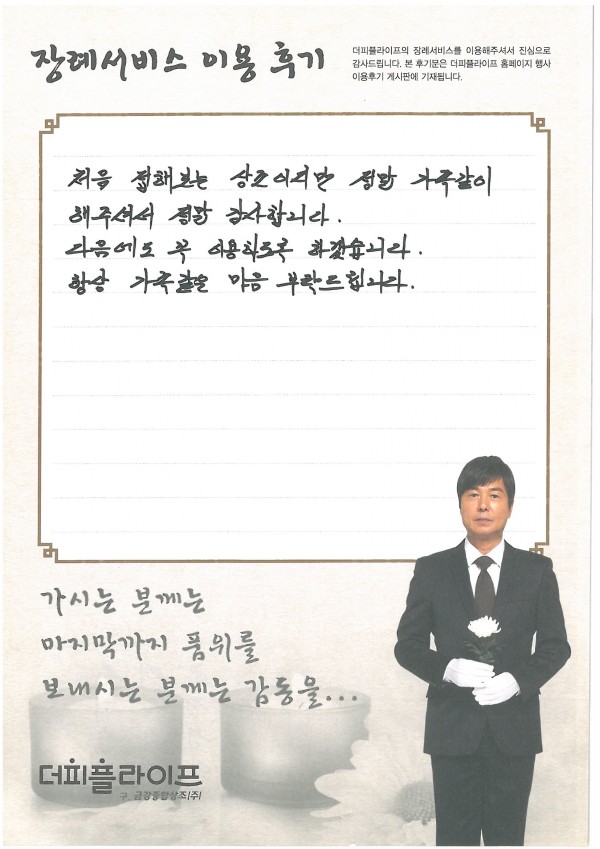 장례서비스 이용 후기
더피플라이프의 장례서비스를 이용해주셔서 진심으로
감사드립니다. 본 후기문은 더피플라이프 홈페이지 행사
이용후기 게시판에 기재됩니다.
처음 접해보는 상조이지만 정말 가족같이
해주셔서 정말 감사합니다.
다음에도 꼭 이용하도록 하겠습니다.
항상 가족같은 마음 부탁드립니다.
가시는 분께는
마지막까지 품위를
보내시는 분께는 감동을...
더피플라이프
구. 금강종합상조(주)